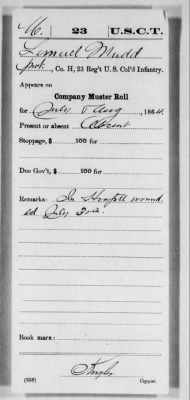 M. 23 U.S.C.T.
Lemuel Mudd
Prvt., Co. H, 23 Reg't U. S. Col'd Infantry.
Appears on
Company Muster Roll
for July & Aug, 1864.
Present or absent Absent
Stoppage, $ 100 for
Due Gov't, $ 100 for
Remarks: In Hospitl wound
ed July 30th.
Book mark:
(358) Copyist.